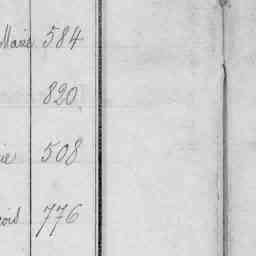 Marie 584
820
ie 508
çois 776